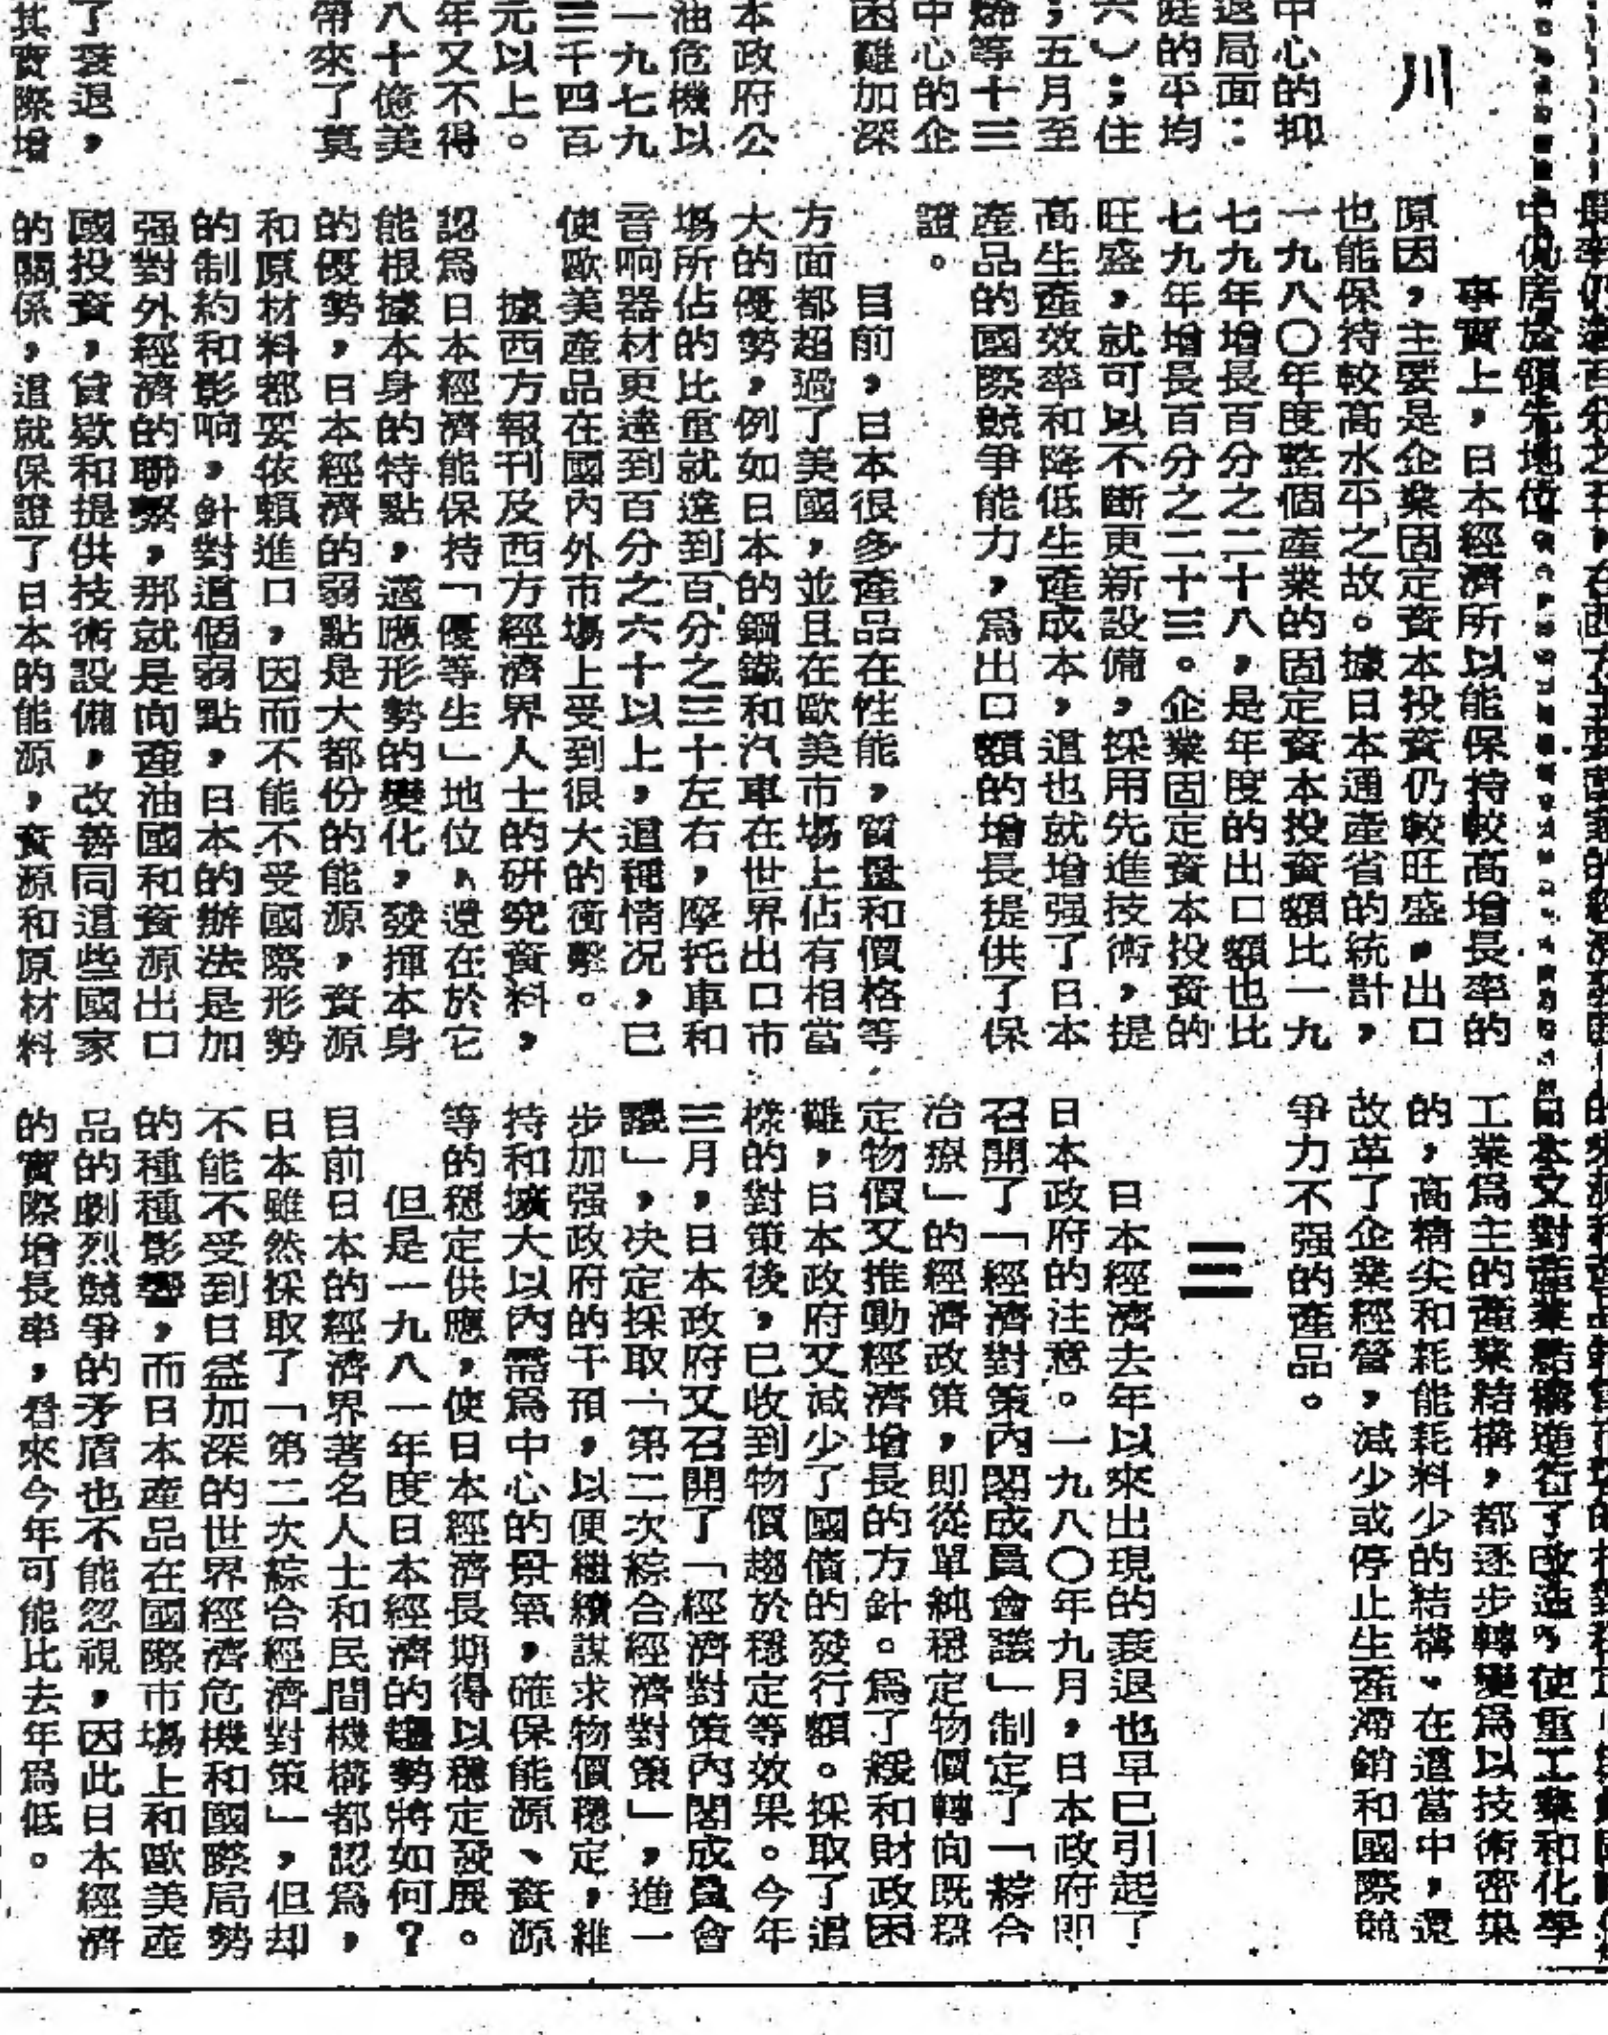 川
中心的抑
退局面：
庭的平均
六）；住
；五月至
烯等十三
中心的企
困難加深
本政府公
油危機以
一九七九
三千四百
元以上。
年又不得
八十億美
帶來了莫
了衰退，
其實際增
中仍居於領先地位
事實上，日本經濟所以能保持較高增長率的
原因，主要是企業固定資本投資仍較旺盛，出口
也能保持較高水平之故。據日本通產省的統計，
一九八〇年度整個產業的固定資本投資額比一九
七九年增長百分之二十八，是年度的出口額也比
七九年增長百分之二十三。企業固定資本投資的
旺盛，就可以不斷更新設備，採用先進技術，提
高生產效率和降低生產成本，這也就增强了日本
產品的國際競爭能力，爲出口額的增長提供了保
證。
目前，日本很多產品在性能，質量和價格等
方面都超過了美國，並且在歐美市場上佔有相當
大的優勢，例如日本的鋼鐵和汽車在世界出口市
場所佔的比重就達到百分之三十左右，摩托車和
音响器材更達到百分之六十以上，這種情况，已
使歐美產品在國內外市場上受到很大的衝擊。
據西方報刊及西方經濟界人士的研究資料，
認爲日本經濟能保持「優等生」地位，還在於它
能根據本身的特點，適應形勢的變化，發揮本身
的優勢，日本經濟的弱點是大都份的能源，資源
和原材料都要依賴進口，因而不能不受國際形勢
的制約和影响，針對這個弱點，日本的辦法是加
强對外經濟的聯繫，那就是向產油國和資源出口
國投資，貸欵和提供技術設備，改善同這些國家
的關係，這就保證了日本的能源，資源和原材料
日本又對產業結構進行了改造，使重工業和化學
工業爲主的產業結構，都逐步轉變爲以技術密集
的，高精尖和耗能耗料少的結構。在這當中，還
改革了企業經營，減少或停止生產滯銷和國際競
爭力不强的產品。
三
日本經濟去年以來出現的衰退也早已引起了
日本政府的注意。一九八〇年九月，日本政府即
召開了「經濟對策內閣成員會議」制定了「綜合
治療」的經濟政策，即從單純穩定物價轉向既穩
定物價又推動經濟增長的方針。爲了緩和財政困
難，日本政府又減少了國債的發行額。採取了這
樣的對策後，已收到物價趨於穩定等效果。今年
三月，日本政府又召開了「經濟對策內閣成員會
議」，决定採取「第二次綜合經濟對策」，進一
步加强政府的干預，以便繼續謀求物價穩定，維
持和擴大以內需爲中心的景氣，確保能源、資源
等的穩定供應，使日本經濟長期得以穩定發展。
但是一九八一年度日本經濟的趨勢將如何？
目前日本的經濟界著名人士和民間機構都認爲，
日本雖然採取了「第二次綜合經濟對策」，但却
不能不受到日益加深的世界經濟危機和國際局勢
的種種影響，而日本產品在國際市場上和歐美產
品的劇烈競爭的矛盾也不能忽視，因此日本經濟
的實際增長率，看來今年可能比去年爲低。